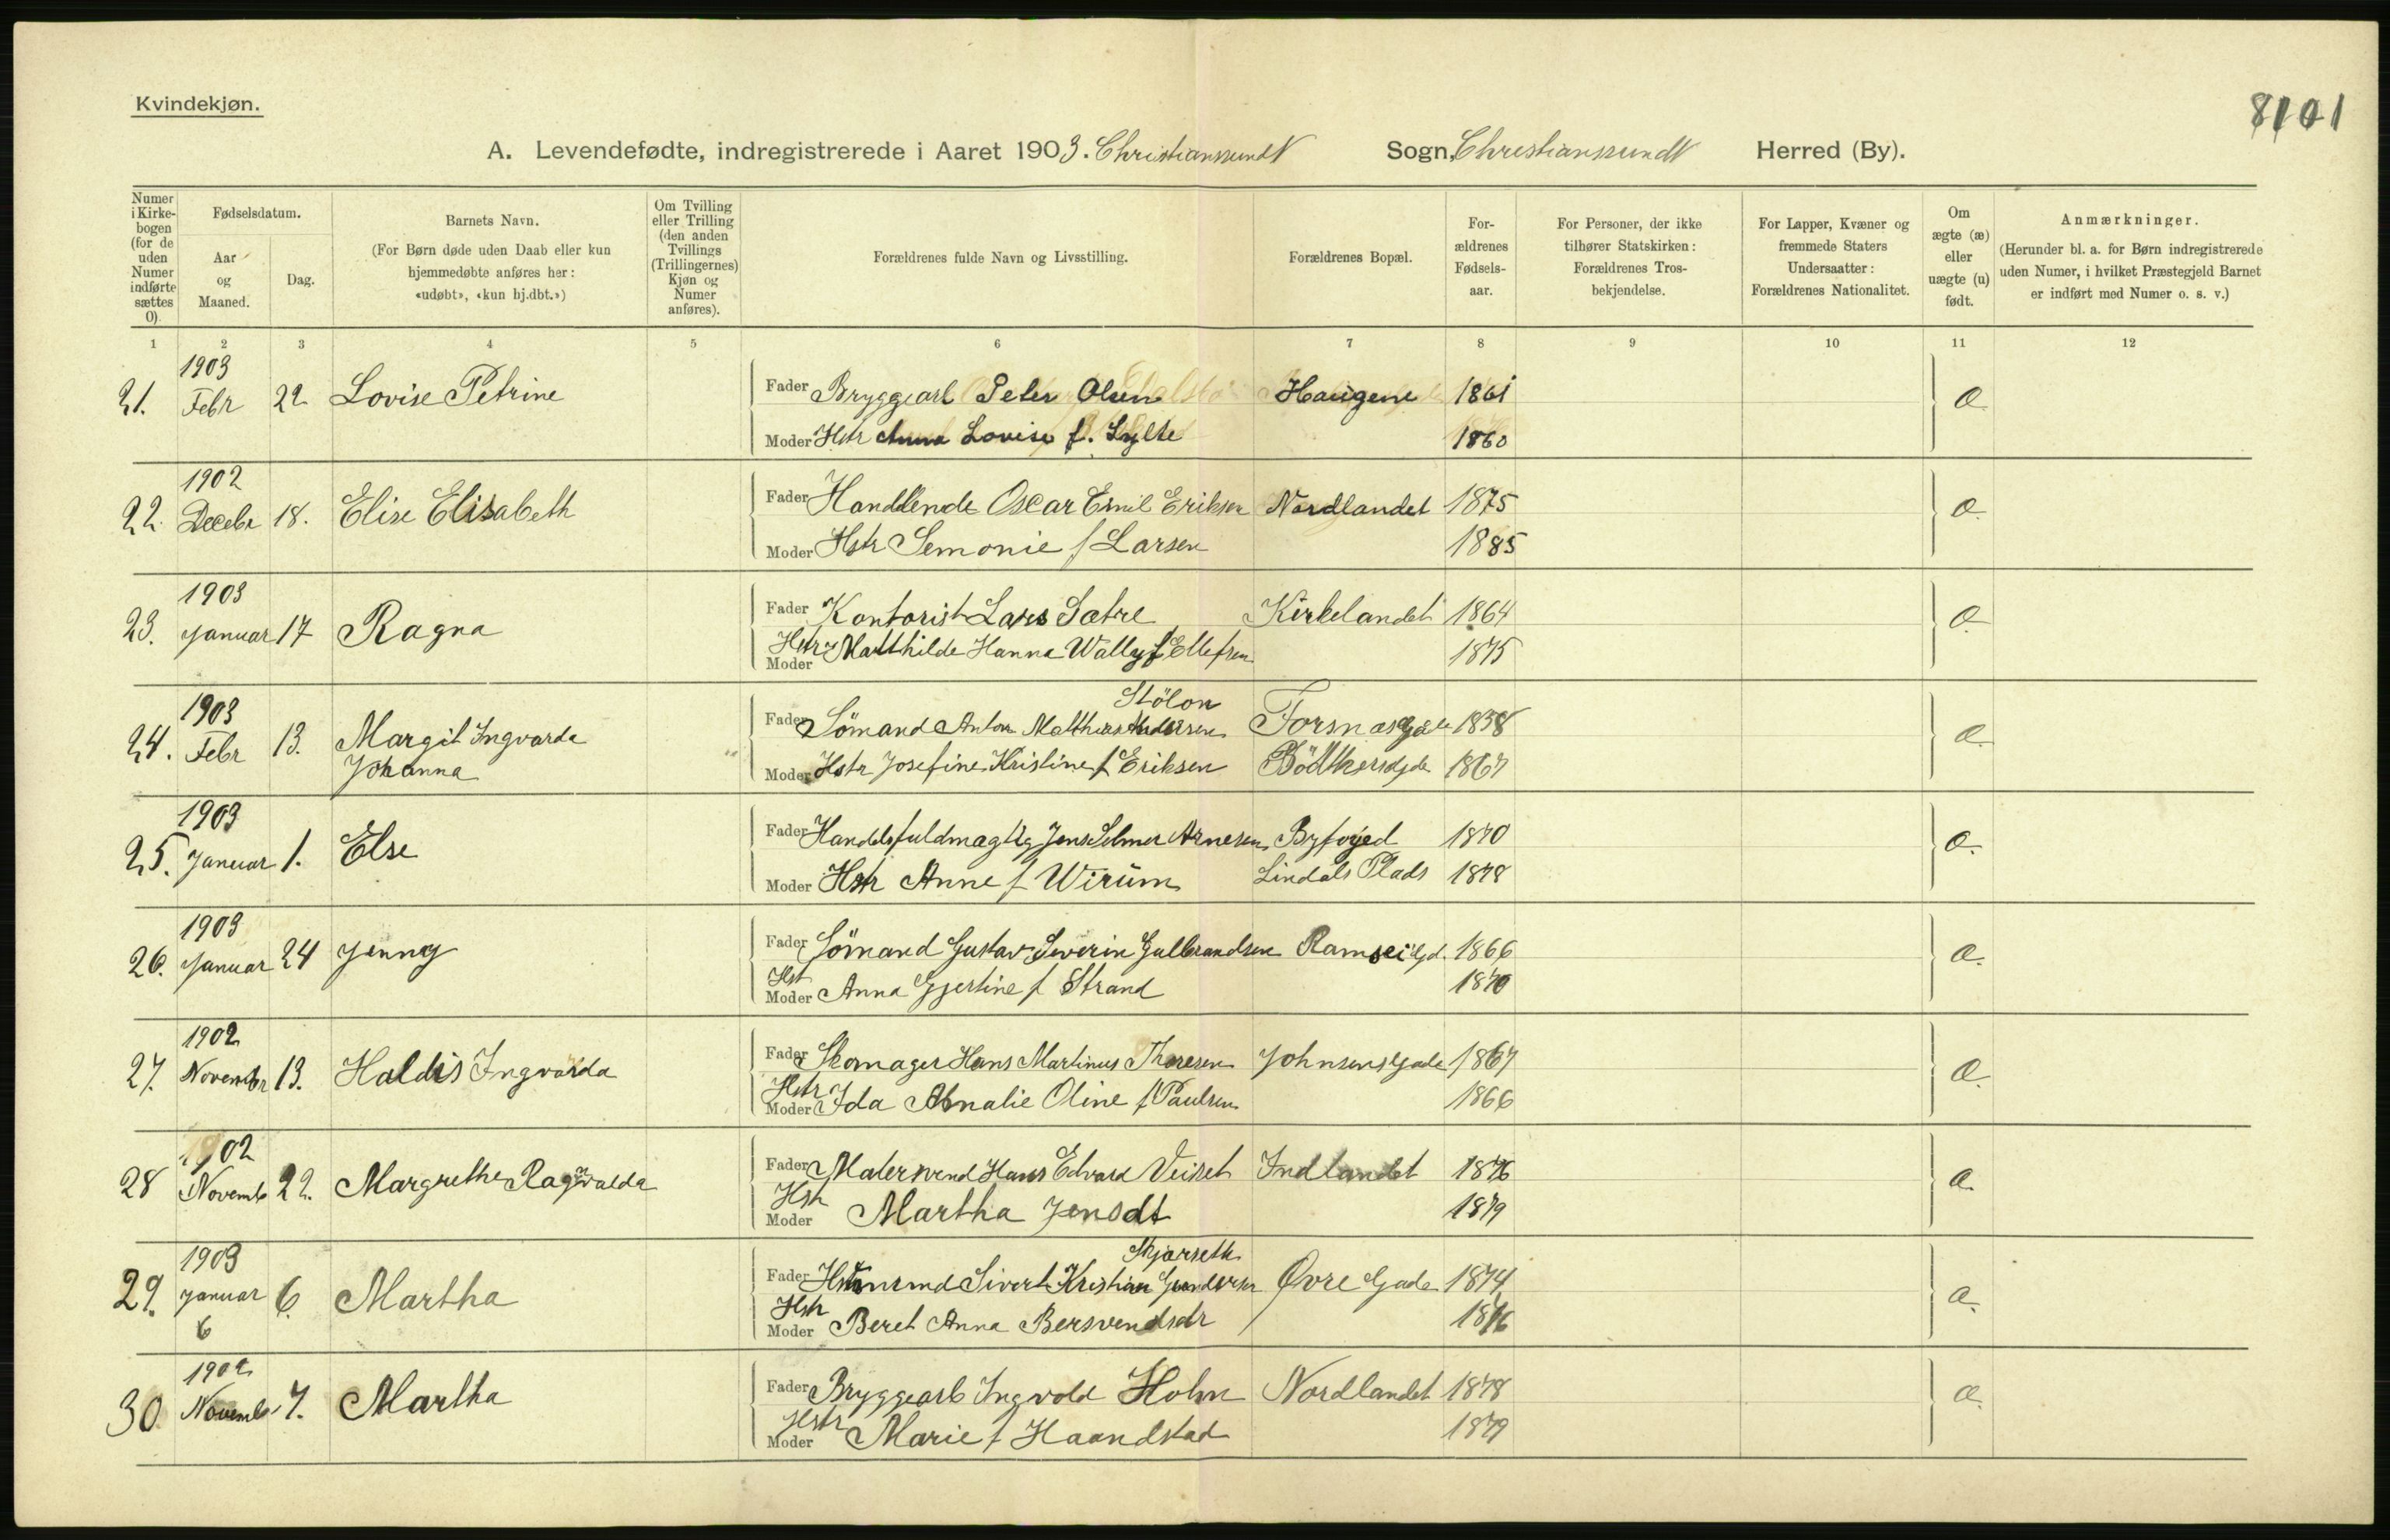 Kvindekjøn.
8101
A. Levendefødte, indregistrerede i Aaret 1903. Christianssund N Sogn, Christianssund N Herred (By).
Numer i Kirkebogen (for de uden Numer indførte sættes 0).
Fødselsdatum.
Aar og Maaned.
Dag.
Barnets Navn.
(For Børn døde uden Daab eller kun hjemmedøbte anføres her: «udøbt», «kun hj.dbt.»)
Om Tvilling eller Trilling (den anden Tvillings (Trillingernes) Kjøn og Numer anføres).
Forældrenes fulde Navn og Livsstilling.
Forældrenes Bopæl.
Forældrenes Fødselsaar.
For Personer, der ikke tilhører Statskirken: Forældrenes Trosbekjendelse.
For Lapper, Kvæner og fremmede Staters Undersaatter: Forældrenes Nationalitet.
Om ægte (æ) eller uægte (u) født.
Anmærkninger.
(Herunder bl. a. for Børn indregistrerede uden Numer, i hvilket Præstegjeld Barnet er indført med Numer o. s. v.)
1 2 3 4 5 6 7 8 9 10 11 12
1903
21. Febr 22 Lovise Petrine Fader Bryggearb Peter Olsen Haugene 1861 æ
Moder Hstr Anna Lovise f. Lylte 1860
1902
22. Decebr 18. Elise Elisabeth Fader Handlende Oscar Emil Eriksen Nordlandet 1875 æ
Moder Hstr Semonie f Larsen 1885
1903
23. Januar 17 Ragna Fader Kontorist Lars Sætre Kirkelandet 1864 æ
Moder Hstr Matthilde Hanna Wally f Ellefsen 1875
1903 Stölon
24. Febr 13. Margit Ingvarda Fader Sömand Anton Mathias Andersen Forsnæsgade 1838 æ
Johanna Moder Hstr Josefine Kristine f Eriksen Bödtkersgde 1867
1903
25. Januar 1. Else Fader Handelsfuldmægtig Jens Selmer Arnesen Byfoged 1870 æ.
Moder Hstr Anne f Wirum Lindals Plads 1878
1903
26. Januar 24 Jenny Fader Sömand Gustav Severin Gulbrandsen Ramsvigd. 1866 æ.
Hst Moder Anna Gjertine f Strand 1870
1902
27. Novembr 13. Haldis Ingvarda Fader Skomager Hans Martinus Thoresen Johnsensgade 1867 æ.
Hstr Moder Ida Amalie Oline f Paulsen 1866
1902
28 Novemb 22. Margrethe Ragnvalda Fader Malersvend Hans Edvard Veiset Indlandet 1876 æ.
Hstr Moder Martha Jensdt 1879
1903 Skjørseth
29. Januar 6. Martha Fader Sivert Kristian Gundersen Øvre Gade 1874 æ.
6 Hstr Moder Beret Anna Bersvendsdtr 1876
1902
30 Novemb 7. Martha Fader Bryggearb Ingvold Holm Nordlandet 1878 æ.
Hstr Moder Marie f Haandstad 1879